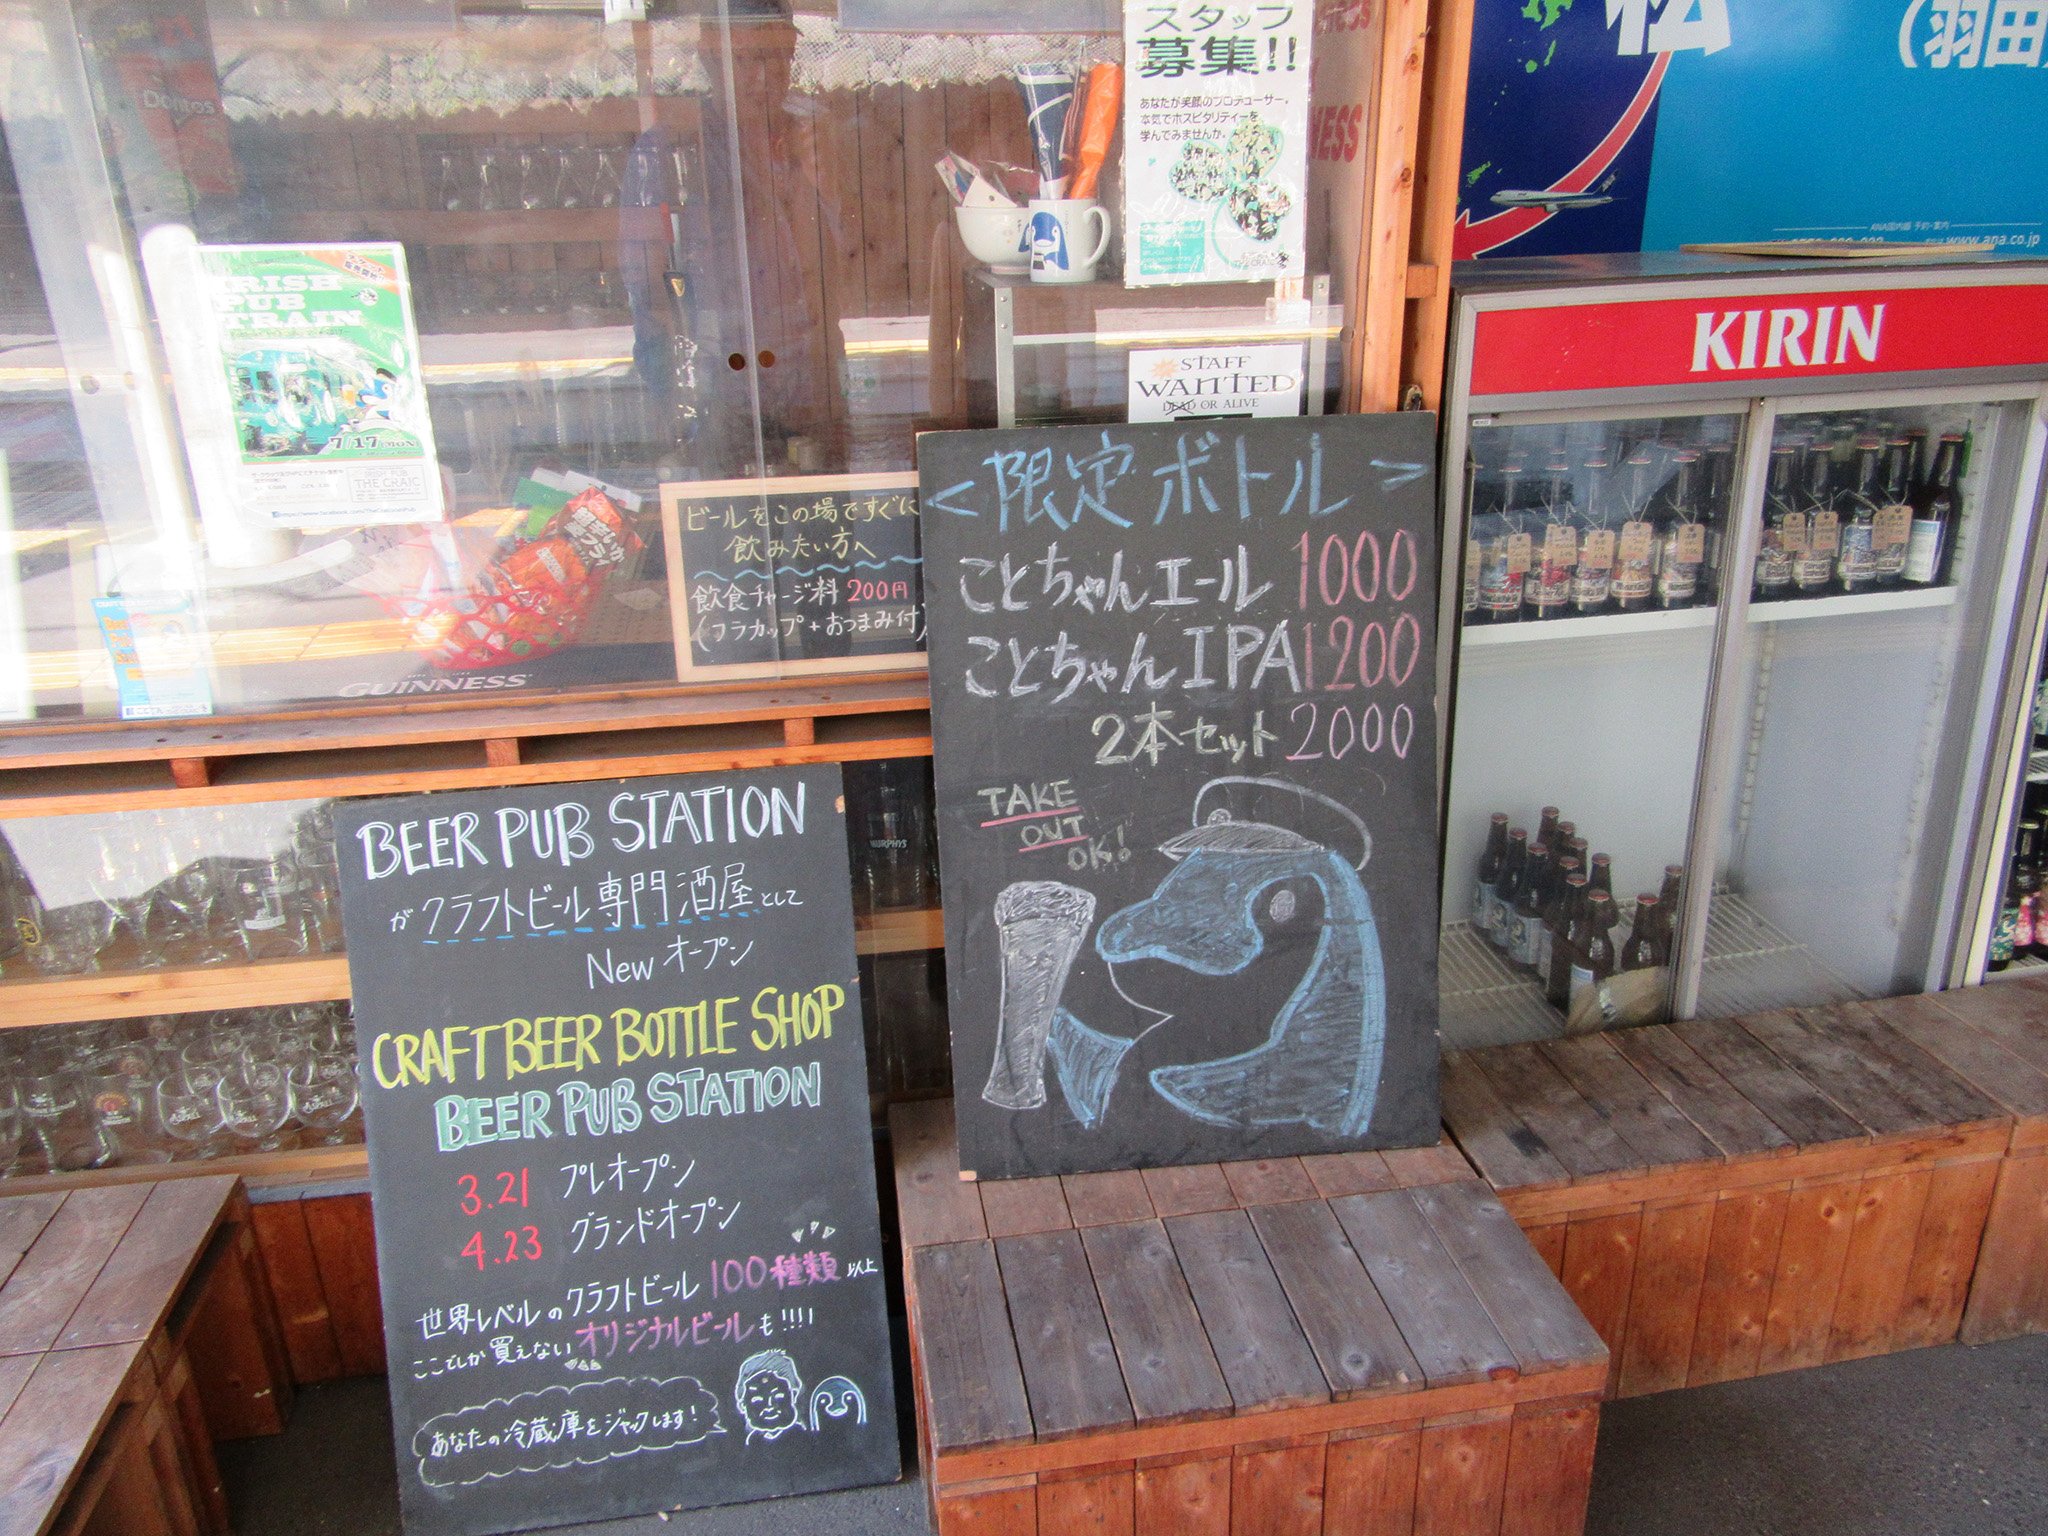 スタッフ
募集!!
あなたが笑顔のプロデューサー。
本気でホスピタリティーを
学んでみませんか。
松
(羽田
www.ana.co.jp
KIRIN
STAFF
WANTED
DEAD OR ALIVE
IRISH
PUB
TRAIN
7/17(MON)
THE CRAIC
GUINNESS
ビールをこの場ですぐに
飲みたい方へ
飲食チャージ料 200円
(プラカップ+おつまみ付)
<限定ボトル>
ことちゃんエール 1000
ことちゃんIPA 1200
2本セット 2000
TAKE
OUT
OK!
MURPHYS
BEER PUB STATION
がクラフトビール専門酒屋として
Newオープン
CRAFT BEER BOTTLE SHOP
BEER PUB STATION
3.21 プレオープン
4.23 グランドオープン
世界レベルのクラフトビール100種類以上
ここでしか買えないオリジナルビールも!!!!
あなたの冷蔵庫をジャックします!